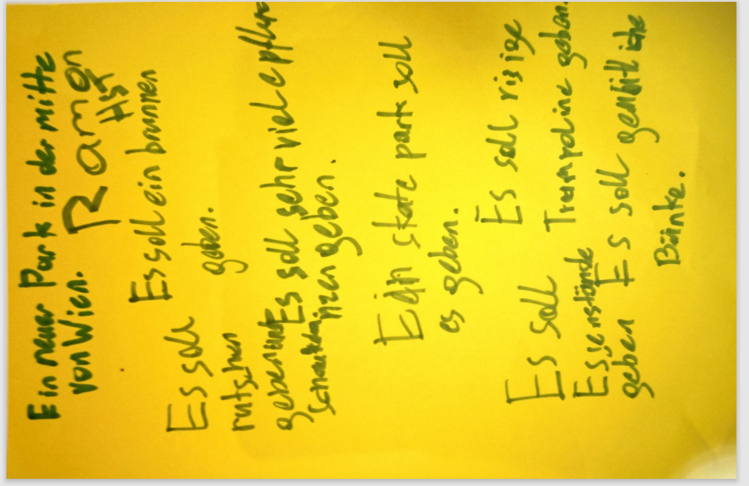 Ein neuer Park in der mitte
von Wien.
Ramon
Es soll ein brunnen
geben.
Es soll
rutschen
geben und
Es soll sehr viele pflan
zen geben.
Ein skate park soll
es geben.
Es soll risige
Trampoline geben.
Es soll
Essenstände
geben
Es soll gemütliche
Bänke.